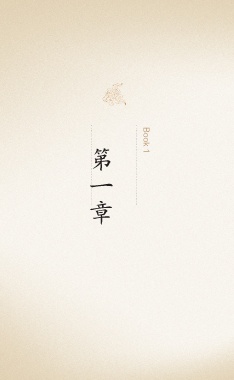 Book 1
第一章